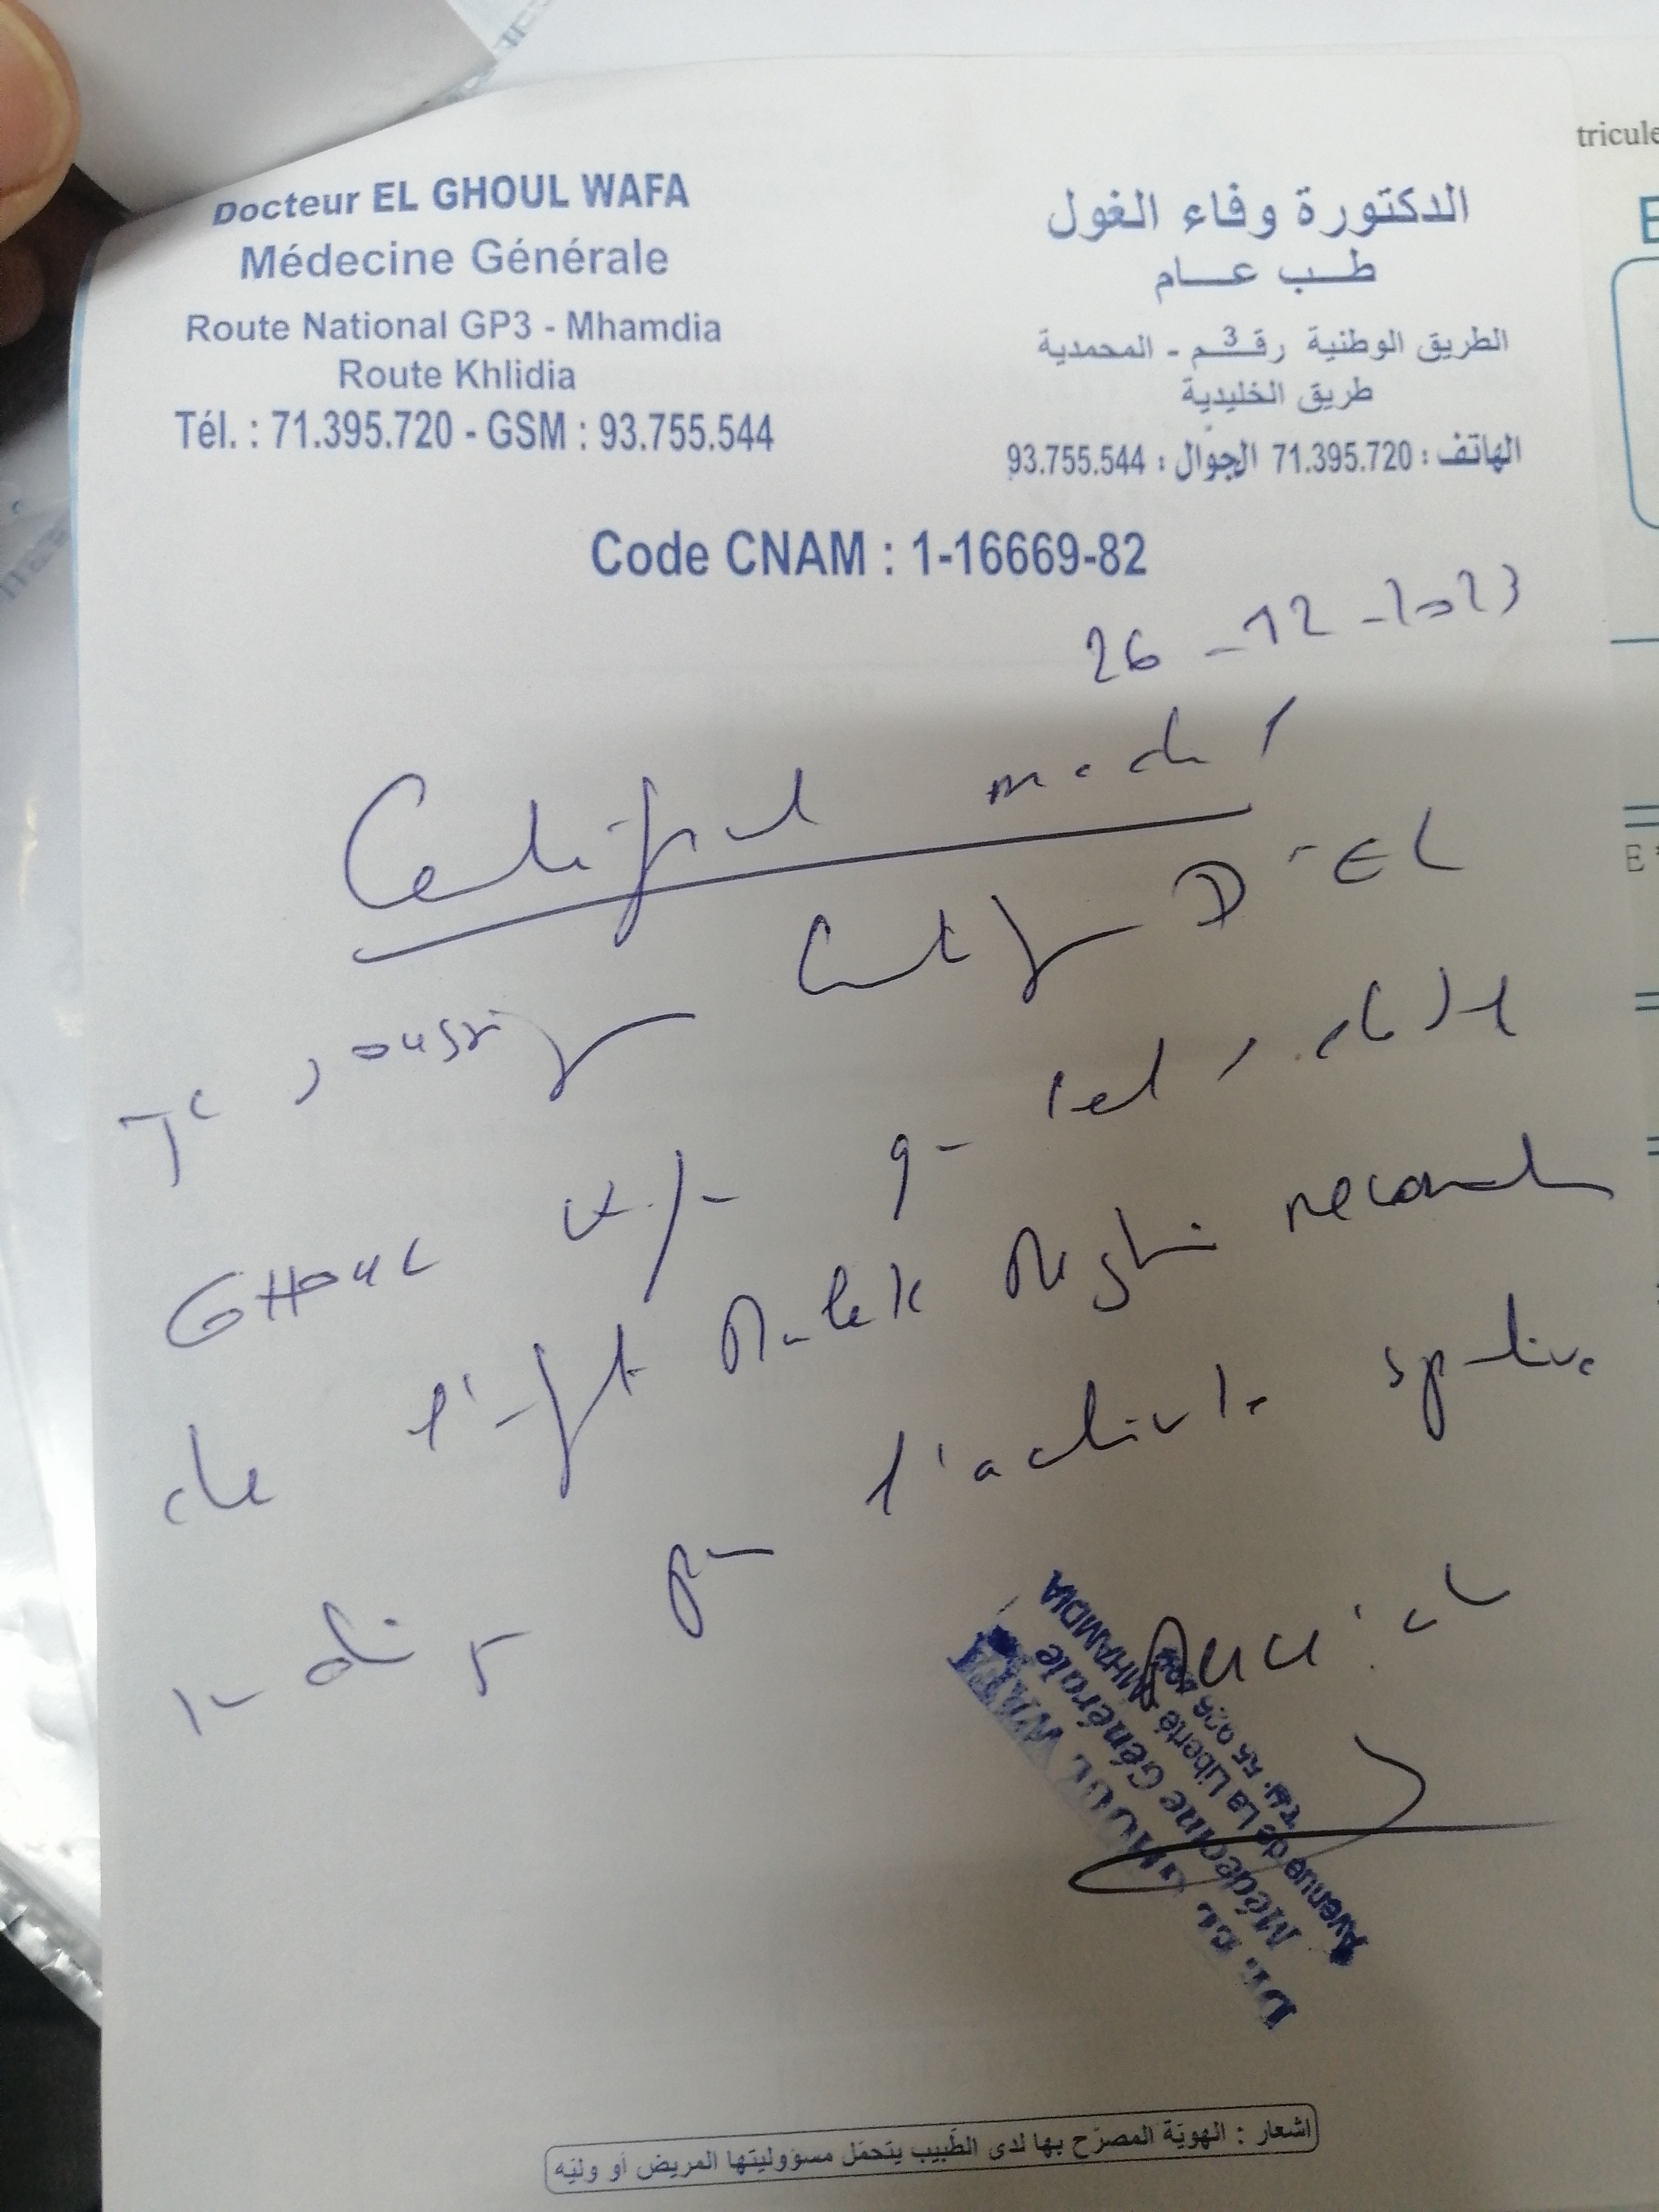 Docteur EL GHOUL WAFA
Médecine Générale
Route National GP3 - Mhamdia
Route Khlidia
Tél. : 71.395.720 - GSM : 93.755.544
الدكتورة وفاء الغول
طب عام
الطريق الوطنية رقم 3 - المحمدية
طريق الخليدية
الهاتف : 71.395.720 الجوال : 93.755.544
Code CNAM : 1-16669-82
26-12-2023
Certificat medical
Je soussigné Certifie Dr EL
GHOUL Wafa que l'état
de l'enfant Malek necessite
pour l'activité sportive
Merci
Dr. EL GHOUL WAFA
Médecine Générale
Avenue de La Liberté MHAMDIA
اشعار : الهويّة المصرّح بها لدى الطّبيب يتحمّل مسؤوليتها المريض أو وليّه
tricule
E
E